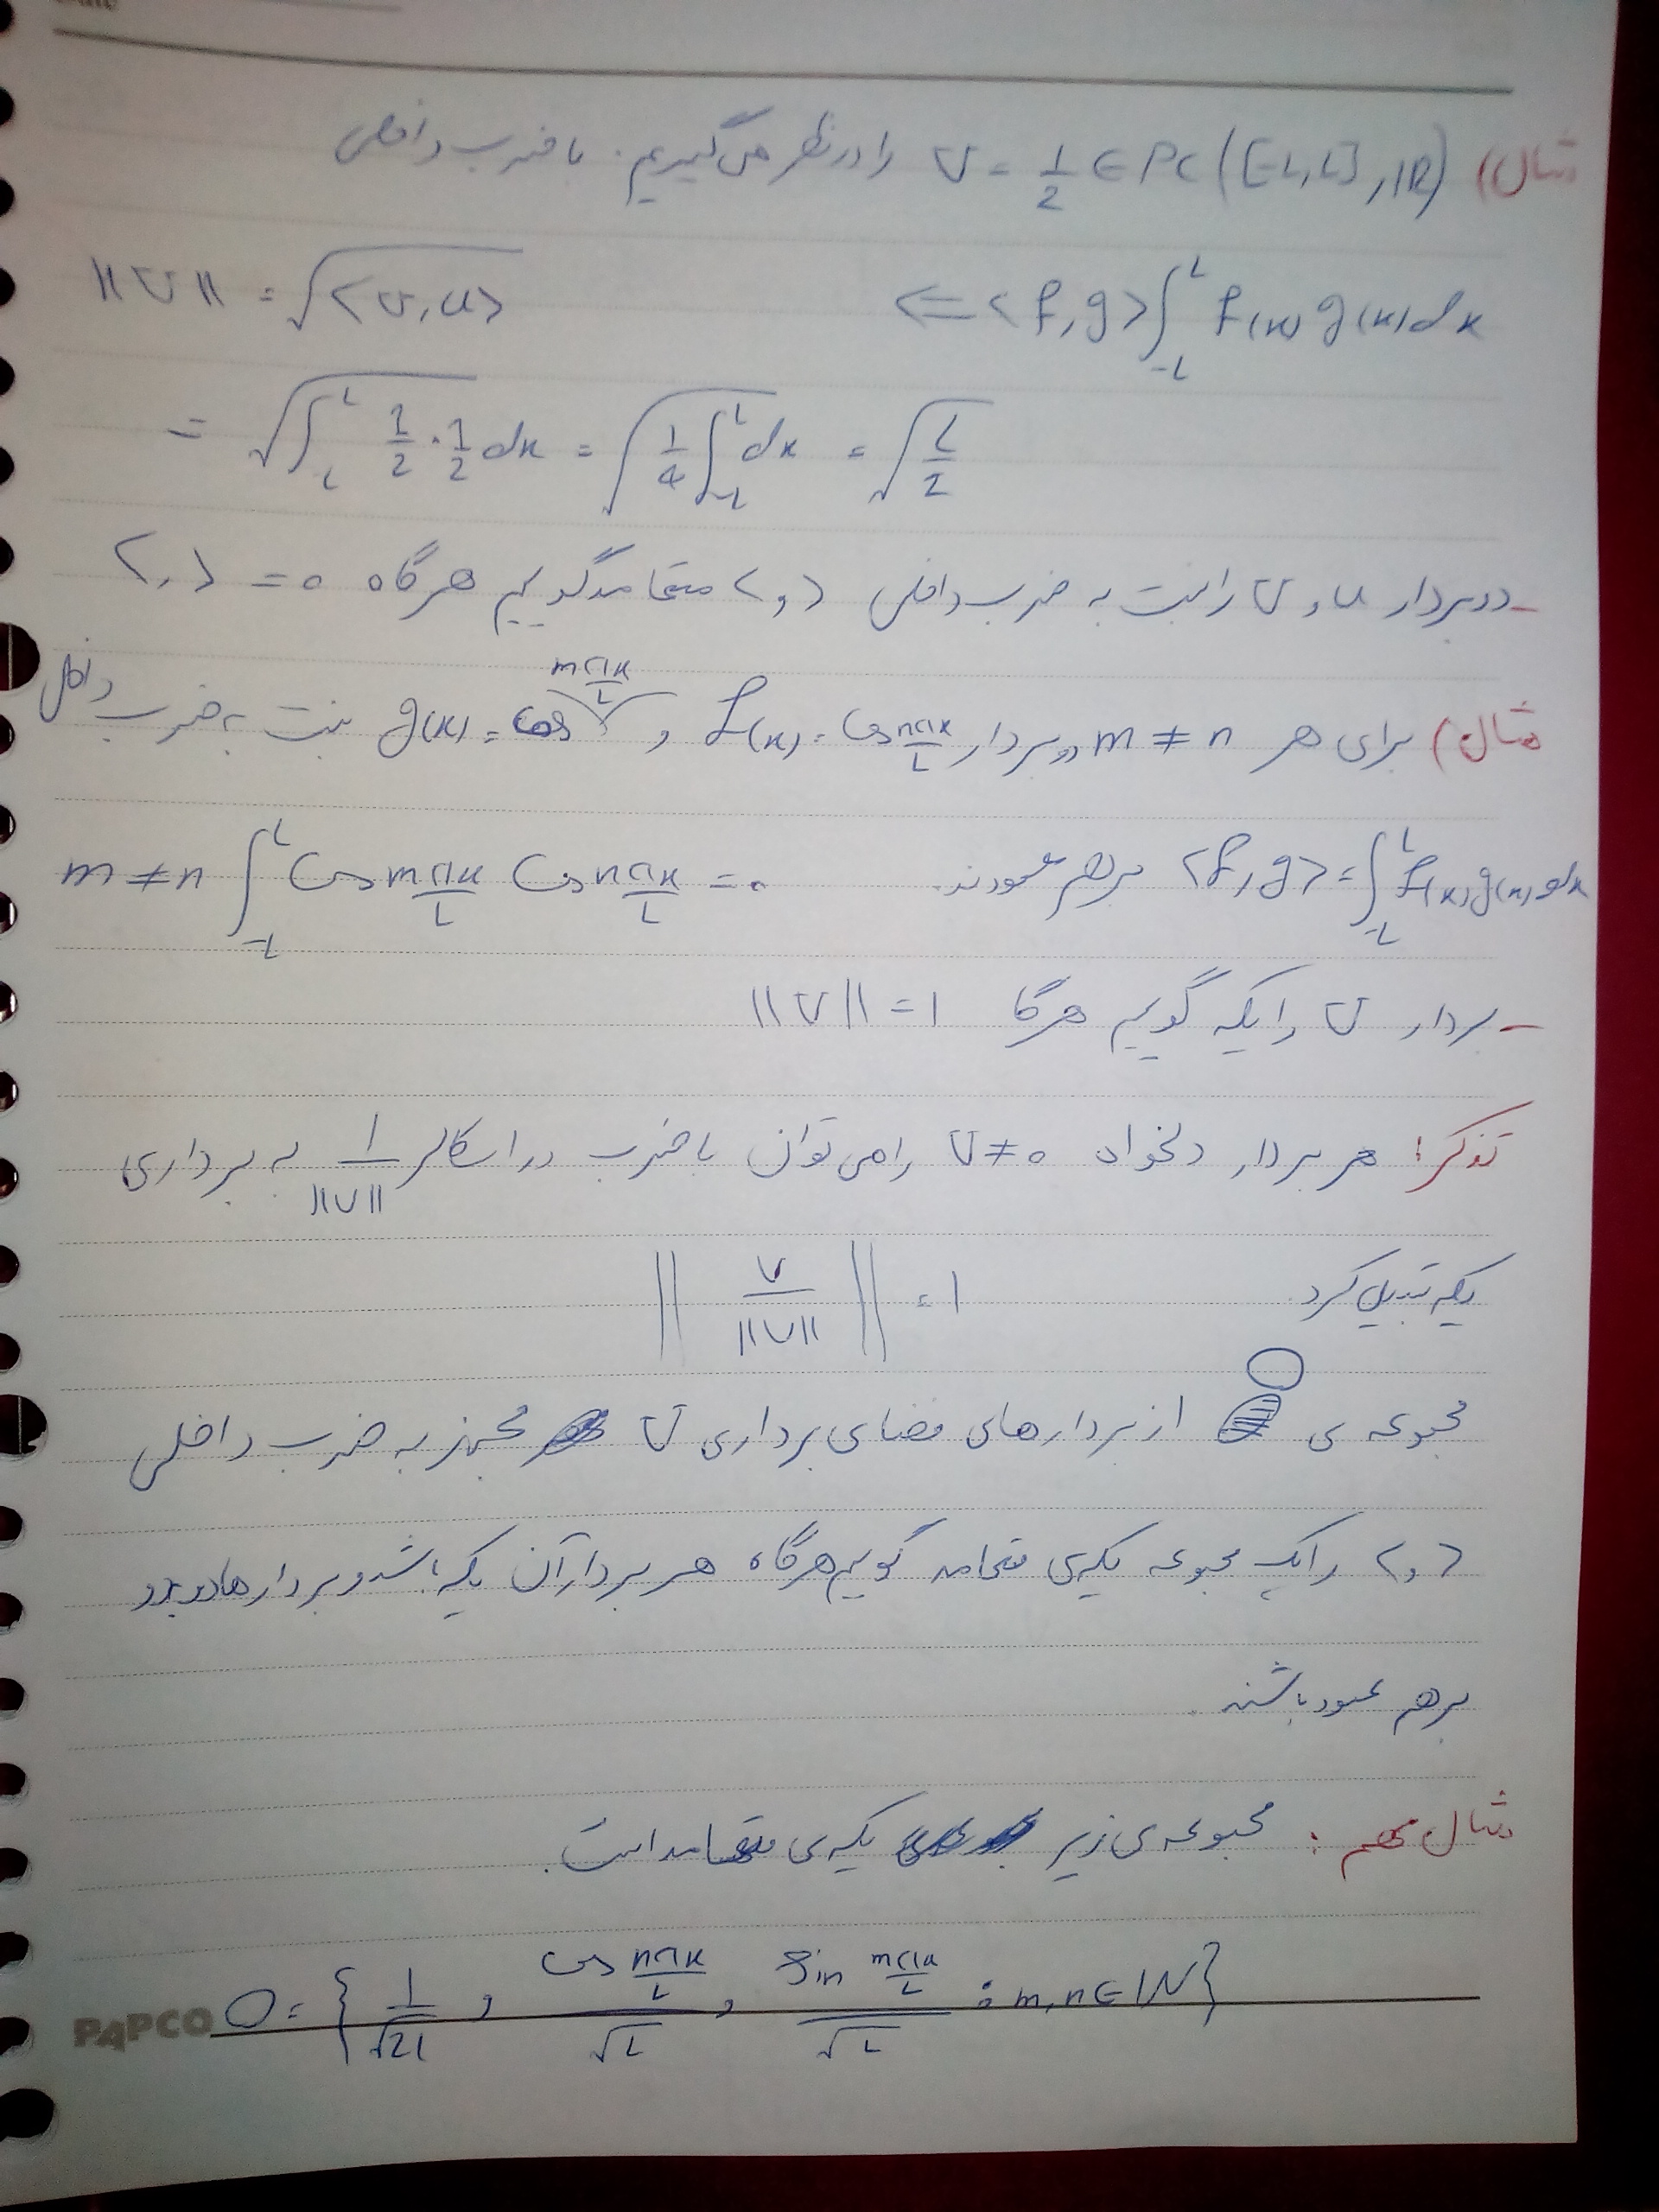 مثال) v = 1/2 ∈ PC([-L, L], IR) را در نظر می‌گیریم. با ضرب داخلی
<= <f, g> ∫_{-L}^{L} f(x) g(x) dx    ||v|| = √<v, u>
= √∫_{L}^{L} 1/2 · 1/2 dx = √(1/4 ∫_{-L}^{L} dx) = √(L/2)
- دو بردار u و v را نسبت به ضرب داخلی < , > متعامد گوییم هرگاه < , > = ۰
مثال) برای هر m ≠ n دو بردار f(x) = Cos nπx/L و g(x) = Cos mπx/L نسبت به ضرب داخلی
<f, g> = ∫_{-L}^{L} f(x) g(x) dx برهم عمودند.    m ≠ n ∫_{-L}^{L} Cos mπx/L Cos nπx/L = ۰
- بردار v را یکه گوییم هرگا ||v|| = ۱
تذکر: هر بردار دلخواه v ≠ ۰ را می توان با ضرب در اسکالر 1/||v|| به برداری
یکه تبدیل کرد.    || v/||v|| || = ۱
مجموعه ی O از بردارهای فضای برداری V مجهز به ضرب داخلی
< , > را یک مجموعه یکه‌ی متعامد گوییم هرگاه هر بردار آن یکه باشد و بردارها دو بدو
برهم عمود باشند.
مثال مهم : مجموعه‌ی زیر یکه‌ی متعامد است.
O = { 1/√2L , cos nπx/L / √L , Sin mπx/L / √L : m, n ∈ IN }
PAPCO